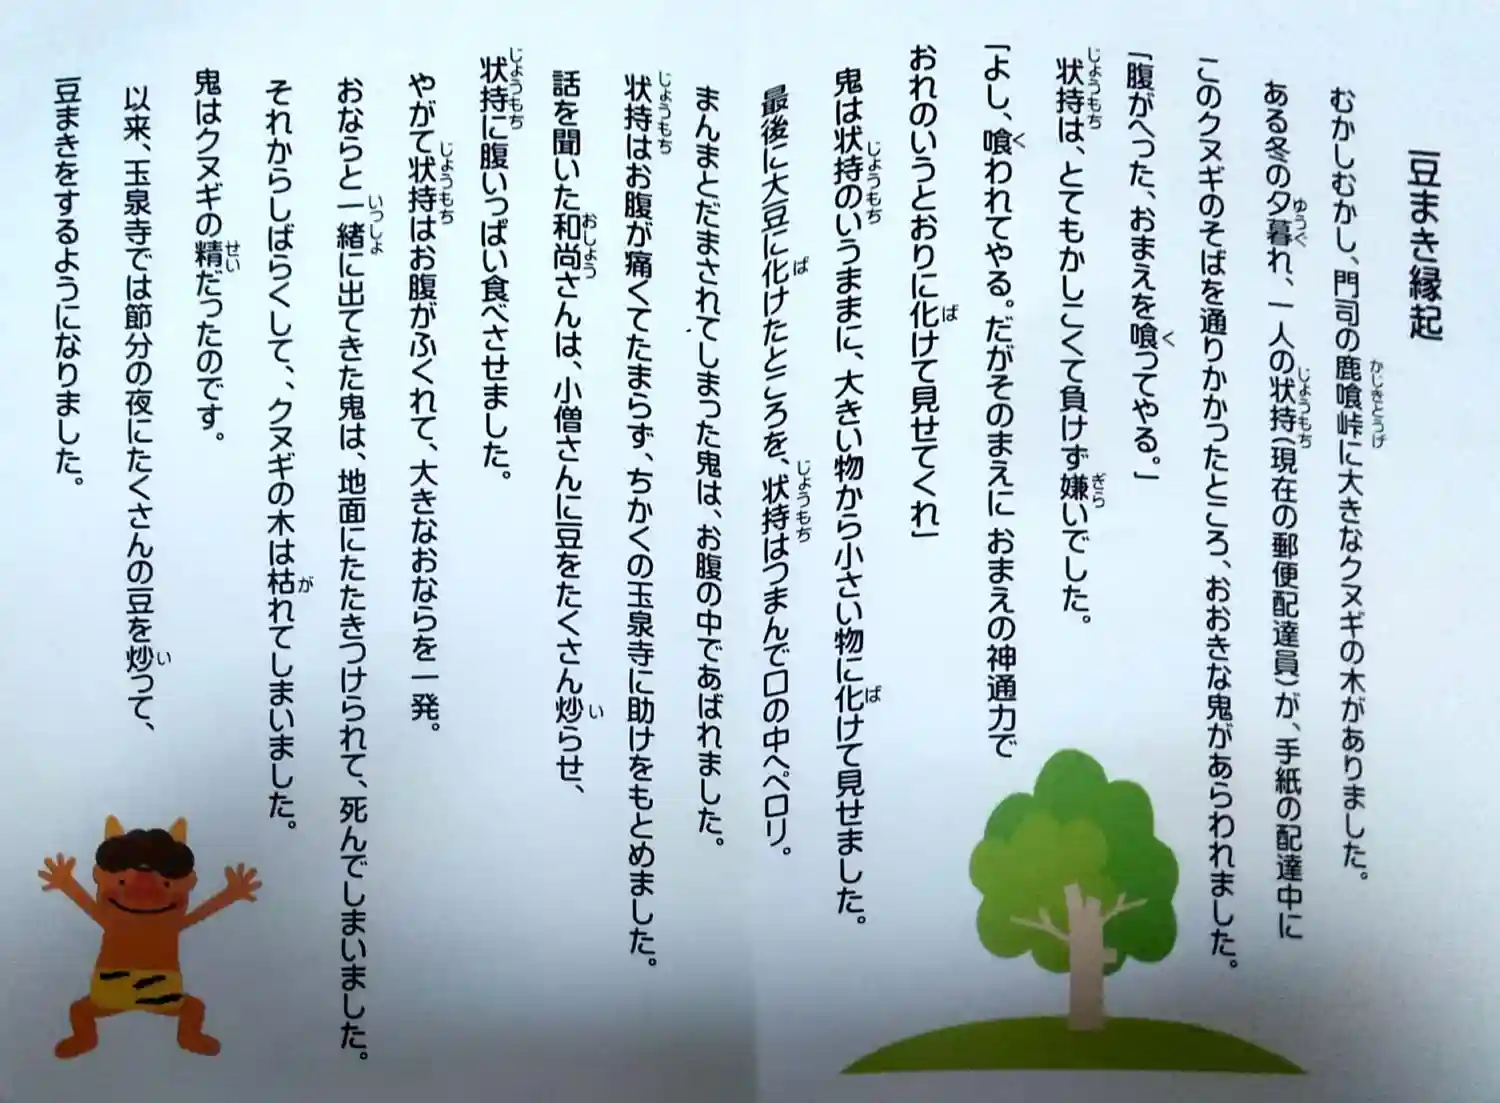 豆まき縁起
むかしむかし、門司の鹿喰峠に大きなクヌギの木がありました。
ある冬の夕暮れ、一人の状持(現在の郵便配達員)が、手紙の配達中に
このクヌギのそばを通りかかったところ、おおきな鬼があらわれました。
「腹がへった、おまえを喰ってやる。」
状持は、とてもかしこくて負けず嫌いでした。
「よし、喰われてやる。だがそのまえに おまえの神通力で
おれのいうとおりに化けて見せてくれ」
鬼は状持のいうままに、大きい物から小さい物に化けて見せました。
最後に大豆に化けたところを、状持はつまんで口の中へペロリ。
まんまとだまされてしまった鬼は、お腹の中であばれました。
状持はお腹が痛くてたまらず、ちかくの玉泉寺に助けをもとめました。
話を聞いた和尚さんは、小僧さんに豆をたくさん炒らせ、
状持に腹いっぱい食べさせました。
やがて状持はお腹がふくれて、大きなおならを一発。
おならと一緒に出てきた鬼は、地面にたたきつけられて、死んでしまいました。
それからしばらくして、、クヌギの木は枯れてしまいました。
鬼はクヌギの精だったのです。
以来、玉泉寺では節分の夜にたくさんの豆を炒って、
豆まきをするようになりました。